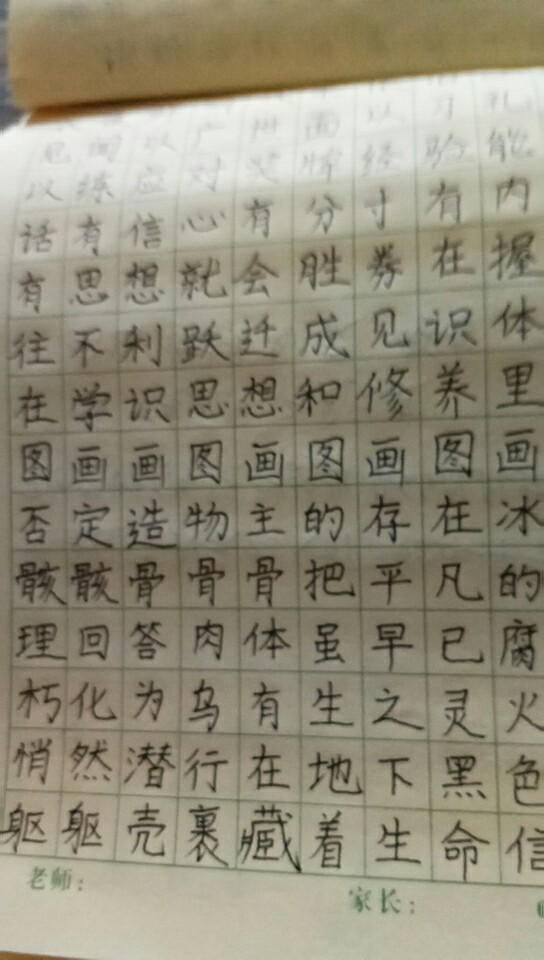 以练应对
话有信心有分寸有内
有思想就会胜券在握
往不利跃迁成见识体
在学识思想和修养里
图画画图画图画图画
否定造物主的存在冰
骸骸骨骨骨把平凡的
理回答肉体虽早已腐
朽化为乌有生之灵火
悄然潜行在地下黑色
躯躯壳裹藏着生命信
老师:
家长: